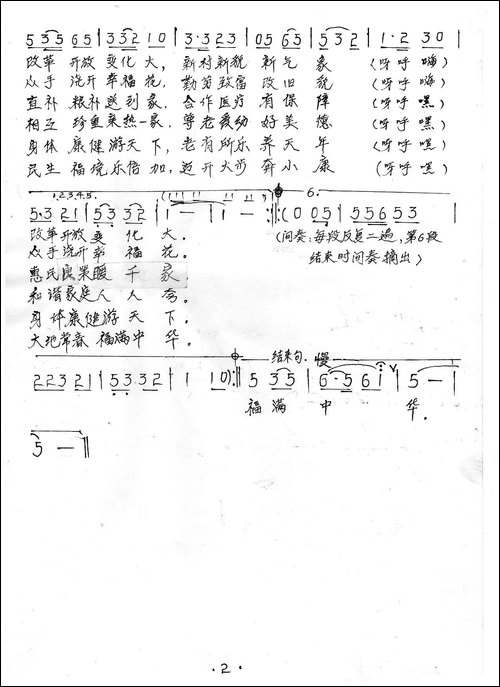 5 3 5 6 5 | 3 3 2 1 0 | 3·3 2 3 | 0 5 6 5 | 5 3 2 | 1·2 3 0 |
改革 开放 变化 大, 新村新貌 新气 象 (呀呼 嗨)
众手 浇开 幸福 花, 勤劳致富 改旧 貌 (呀呼 嗨)
直补 粮补 送到 家, 合作医疗 有保 障 (呀呼 嘿)
相互 珍重 亲热一家, 尊老爱幼 好美 德 (呀呼 嘿)
身体 康健 游天 下, 老有所乐 养天 年 (呀呼 嘿)
民生 福境 乐倍 加, 迈开大步 奔小 康 (呀呼 嘿)
1.2.3.4.5. 6.
5·3 2 1 | 5 3 3 2 | 1 — | 1 — :‖: (0 0 5 | 5 5 6 5 3 |
改革开放 变 化 大.
(间奏:每段反复二遍,第6段
众手浇开 幸 福 花.
结束时间奏摘出)
惠民政策 暖 千 家
和谐家庭 人 人 夸.
身体康健 游 天 下.
大地常春 福满中 华.
结束句. 慢
2 2 3 2 1 | 5 3 3 2 | 1 1 0) :‖ 5 3 5 | 6·5 6 i | 5 — |
福 满 中 华.
5 — ‖
·2·